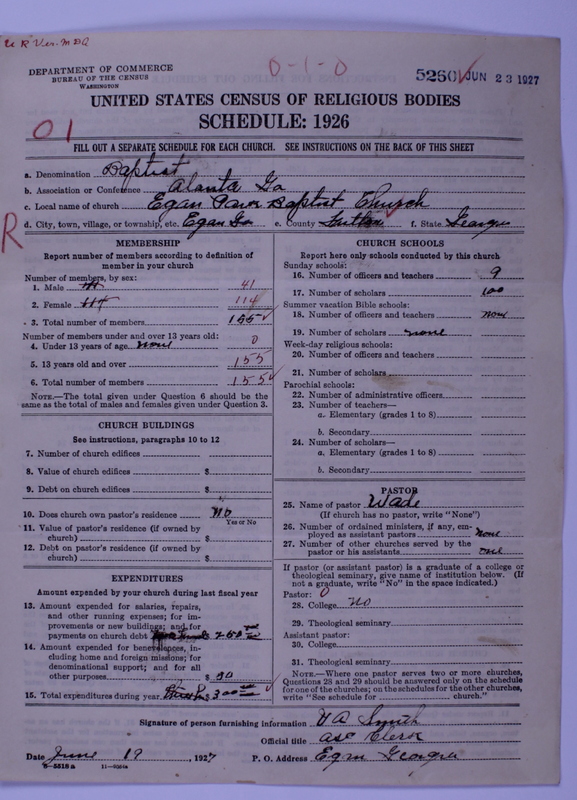 DEPARTMENT OF COMMERCE
BUREAU OF THE CENSUS
WASHINGTON
0-1-0
5260 JUN 23 1927
UNITED STATES CENSUS OF RELIGIOUS BODIES
SCHEDULE: 1926
01
FILL OUT A SEPARATE SCHEDULE FOR EACH CHURCH. SEE INSTRUCTIONS ON THE BACK OF THIS SHEET
a. Denomination Baptist
b. Association or Conference Alanta Ga
c. Local name of church Egan Baptist Church
R
d. City, town, village, or township, etc. Egan Ga e. County Fulton f. State Georgia
MEMBERSHIP
Report number of members according to definition of
member in your church
Number of members, by sex:
1. Male 41
2. Female 114
3. Total number of members 155
Number of members under and over 13 years old:
4. Under 13 years of age none 0
5. 13 years old and over 155
6. Total number of members 155
NOTE.—The total given under Question 6 should be the
same as the total of males and females given under Question 3.
CHURCH BUILDINGS
See instructions, paragraphs 10 to 12
7. Number of church edifices
8. Value of church edifices $
9. Debt on church edifices $
10. Does church own pastor's residence No
Yes or No
11. Value of pastor's residence (if owned by
church) $
12. Debt on pastor's residence (if owned by
church) $
EXPENDITURES
Amount expended by your church during last fiscal year
13. Amount expended for salaries, repairs,
and other running expenses; for im-
provements or new buildings; and for
payments on church debt
14. Amount expended for benevolences, in-
cluding home and foreign missions; for
denominational support; and for all
other purposes $
15. Total expenditures during year 300
CHURCH SCHOOLS
Report here only schools conducted by this church
Sunday schools:
16. Number of officers and teachers 9
17. Number of scholars 100
Summer vacation Bible schools:
18. Number of officers and teachers none
19. Number of scholars none
Week-day religious schools:
20. Number of officers and teachers
21. Number of scholars
Parochial schools:
22. Number of administrative officers
23. Number of teachers—
a. Elementary (grades 1 to 8)
b. Secondary
24. Number of scholars—
a. Elementary (grades 1 to 8)
b. Secondary
PASTOR
25. Name of pastor Wade
(If church has no pastor, write "None")
26. Number of ordained ministers, if any, em-
ployed as assistant pastors none
27. Number of other churches served by the
pastor or his assistants one
If pastor (or assistant pastor) is a graduate of a college or
theological seminary, give name of institution below. (If
not a graduate, write "No" in the space indicated.)
Pastor: 0
28. College No
29. Theological seminary
Assistant pastor:
30. College
31. Theological seminary
NOTE.—Where one pastor serves two or more churches,
Questions 28 and 29 should be answered only on the schedule
for one of the churches; on the schedules for the other churches,
write "See schedule for church."
Signature of person furnishing information Smith
Official title Clerk
Date June 19, 1927 P. O. Address Egan Georgia
8-5518a